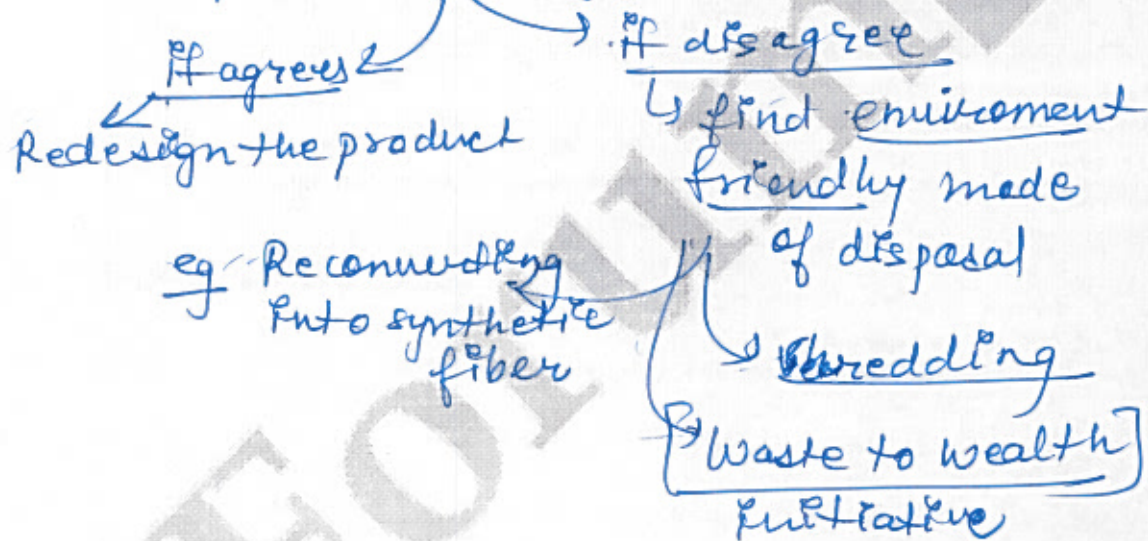 if agrees
Redesign the product
if disagree
find enviroment
friendly mode
of disposal
eg Reconverting
into synthetic
fiber
Shredding
[Waste to wealth]
initiative
Forum